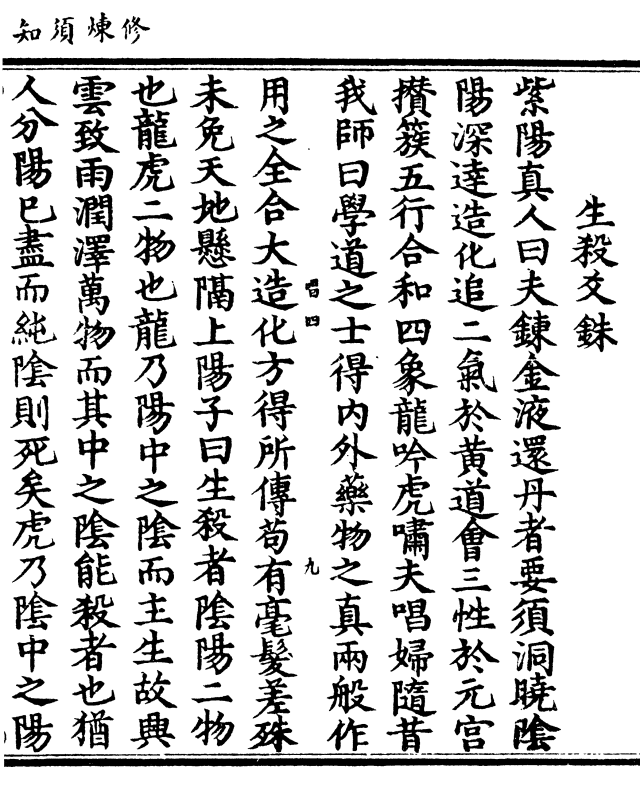 修煉須知
生殺爻銖
紫陽真人曰夫鍊金液還丹者要須洞曉陰
陽深達造化追二氣於黃道會三性於元宮
攢簇五行合和四象龍吟虎嘯夫唱婦隨昔
我師曰學道之士得內外藥物之真兩般作
唱四
九
用之全合大造化方得所傳苟有毫髮差殊
未免天地懸隔上陽子曰生殺者陰陽二物
也龍虎二物也龍乃陽中之陰而主生故興
雲致雨潤澤萬物而其中之陰能殺者也猶
人分陽已盡而純陰則死矣虎乃陰中之陽